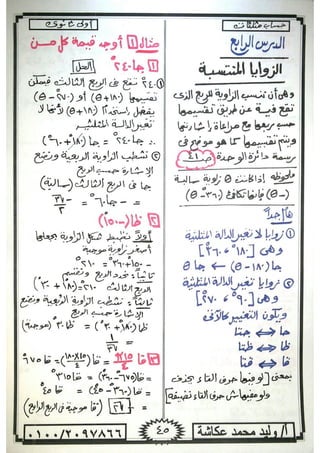 حساب مثلثات
أولى ثانوى
الدرس الرابع
الزوايا المنتسبة
وهى أن تنسب الزاوية للربع الذى
تقع فيه عن طريق تقسيمها
حسب ربعها مع مراعاة إشارتها
ويتم تقسيمها كما هو موضح فى
رسمة دائرة الوحدة صـ ٤١
ملحوظة إذا كانت θ زاوية سالبة
(-θ) فإنها تكافئ (٣٦٠° - θ)
١ زوايا لا تغير الدالة المثلثية
وهى [١٨٠° ، ٣٦٠°]
جا (١٨٠ - θ) ← جا θ
٢ زوايا تغير الدالة المثلثية
وهى [٩٠° ، ٢٧٠°]
ويكون التغيير كالآتى
جا ⟷ جتا
ظا ⟷ ظتا
قا ⟷ قتا
بمعنى [لو فيها حرف التاء يحذف
ولو مفيهاش حرف التاء نضيفه]
مثال ١ أوجد قيمة كل من
١ جا ٢٤٠°
الحل
١- ٢٤٠° تقع فى الربع الثالث فيمكن
تقسيمها (١٨٠ + θ) أو (٢٧٠ - θ)
يفضل استخدام (١٨٠ + θ) لأنها لا
تغير الدالة المثلثية
∴ جا ٢٤٠° = جا (١٨٠ + ٦٠°)
٢- نشطب الزاوية الربعية ونضع
الإشارة حسب الربع
جا فى الربع الثالث (سالبة)
= - جا ٦٠° = - √٣/٢
٢ ظا (-١٥٠°)
أولاً نضبط شكل الزاوية بجعلها
أصغر زاوية موجبة
-١٥٠° + ٣٦٠° = ٢١٠°
ثانياً: نحدد الربع ونقسم
∴ ٢١٠° الربع الثالث = ظا (١٨٠ + ٣٠°)
ثالثاً: نشطب الزاوية الربعية ونضع
الإشارة حسب الربع
∴ ظا (١٨٠ + ٣٠°) = ظا ٣٠° (موجبة)
= ١/√٣
= قا (١٥×١٨٠/٤) = قا ٦٧٥
= قا (٦٧٥ - ٣٦٠°) = قا ٣١٥°
= قا (٣٦٠ - ٤٥°) = قا ٤٥°
= √٢ (قا موجبة فى الربع الرابع)
أ / وليد محمد عكاشة
٤٥
٠١٠٠/٢٠٩٧٨٦٦